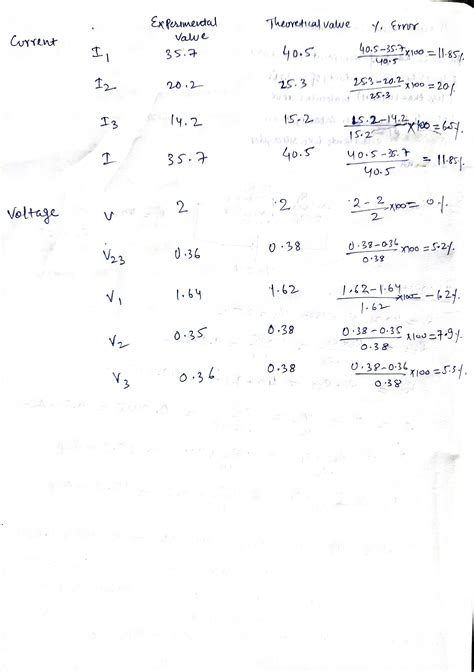 Experimental Value Theoretical value % Error
Current
I₁ 35.7 40.5 (40.5-35.7)/40.5 ×100 = 11.85%
I₂ 20.2 25.3 (25.3-20.2)/25.3 ×100 = 20%
I₃ 14.2 15.2 (15.2-14.2)/15.2 ×100 = 6.5%
I 35.7 40.5 (40.5-35.7)/40.5 = 11.85%
Voltage V 2 2 (2-2)/2 ×100 = 0%
V₂₃ 0.36 0.38 (0.38-0.36)/0.38 ×100 = 5.2%
V₁ 1.64 1.62 (1.62-1.64)/1.62 ×100 =
V₂ 0.35 0.38 (0.38-0.35)/0.38 ×100 = 7.9%
V₃ 0.36 0.38 (0.38-0.36)/0.38 ×100 = 5.3%